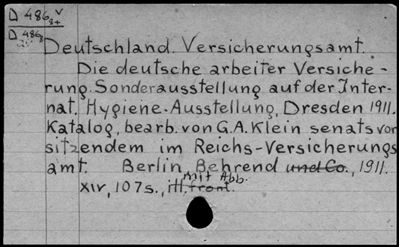 D 486 v
D 486
Deutschland. Versicherungsamt.
Die deutsche arbeiter Versiche-
rung. Sonderausstellung auf der Inter-
nat. Hygiene-Ausstellung, Dresden 1911.
Katalog, bearb. von G.A. Klein senatsvor
sitzendem im Reichs-Versicherungs
amt. Berlin, Behrend und Co., 1911.
mit Abb.
XIV, 107 s., ill. front.